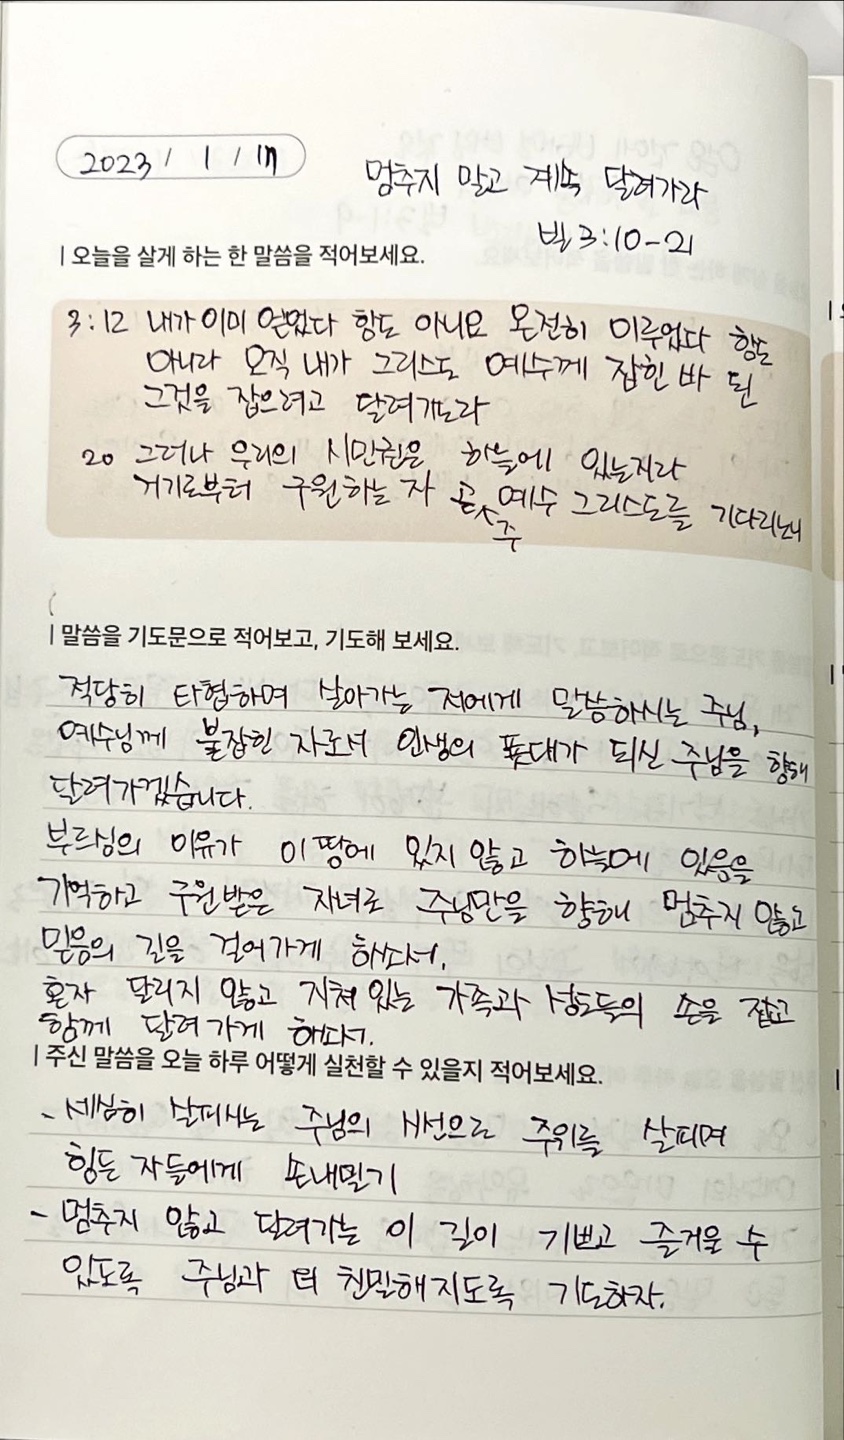 2023 / 1 / 17
멈추지 말고 계속 달려가라
빌 3:10-21
| 오늘을 살게 하는 한 말씀을 적어보세요.
3:12 내가 이미 얻었다 함도 아니요 온전히 이루었다 함도
아니라 오직 내가 그리스도 예수께 잡힌 바 된
그것을 잡으려고 달려가노라
20 그러나 우리의 시민권은 하늘에 있는지라
거기로부터 구원하는 자 곧 예수 그리스도를 기다리노니
주
| 말씀을 기도문으로 적어보고, 기도해 보세요.
적당히 타협하며 살아가는 저에게 말씀하시는 주님,
예수님께 붙잡힌 자로서 인생의 푯대가 되신 주님을 향해
달려가겠습니다.
부르심의 이유가 이 땅에 있지 않고 하늘에 있음을
기억하고 구원받은 자녀로 주님만을 향해 멈추지 않고
믿음의 길을 걸어가게 하소서.
혼자 달리지 않고 지쳐 있는 가족과 성도들의 손을 잡고
함께 달려가게 하소서.
| 주신 말씀을 오늘 하루 어떻게 실천할 수 있을지 적어보세요.
- 세심히 살피시는 주님의 시선으로 주위를 살피며
힘든 자들에게 손내밀기
- 멈추지 않고 달려가는 이 길이 기쁘고 즐거울 수
있도록 주님과 더 친밀해지도록 기도하자.